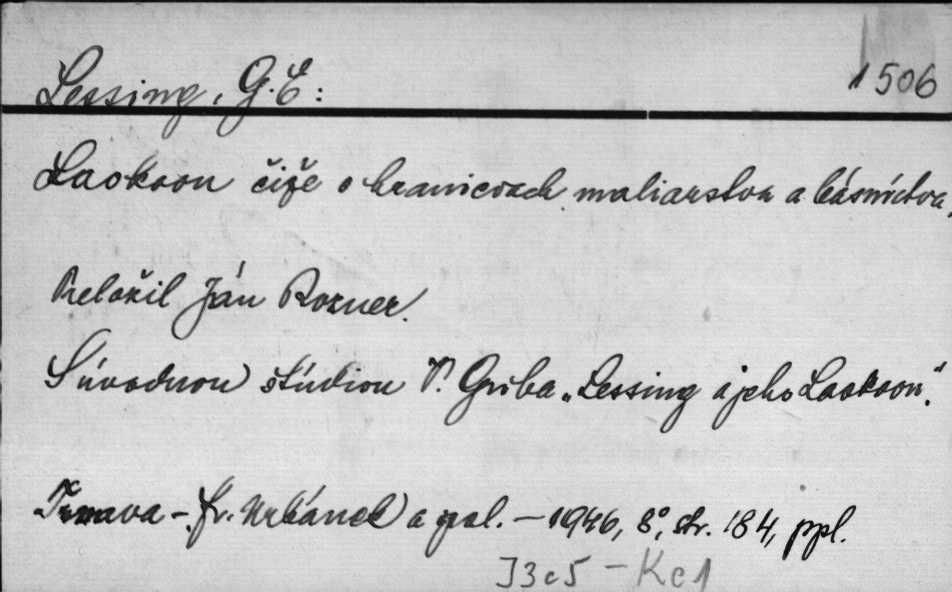 1506
Lessing, G. E:
Laokoon čiže o hraniciach maliarstva a básnictva.
Preložil Ján Rozner.
S úvodnou štúdiou V. Griba „Lessing a jeho Laokoon".
Trnava - Fr. Urbánek a spol. - 1946, 8°, str. 184, ppl.
J3c5 - Kc1